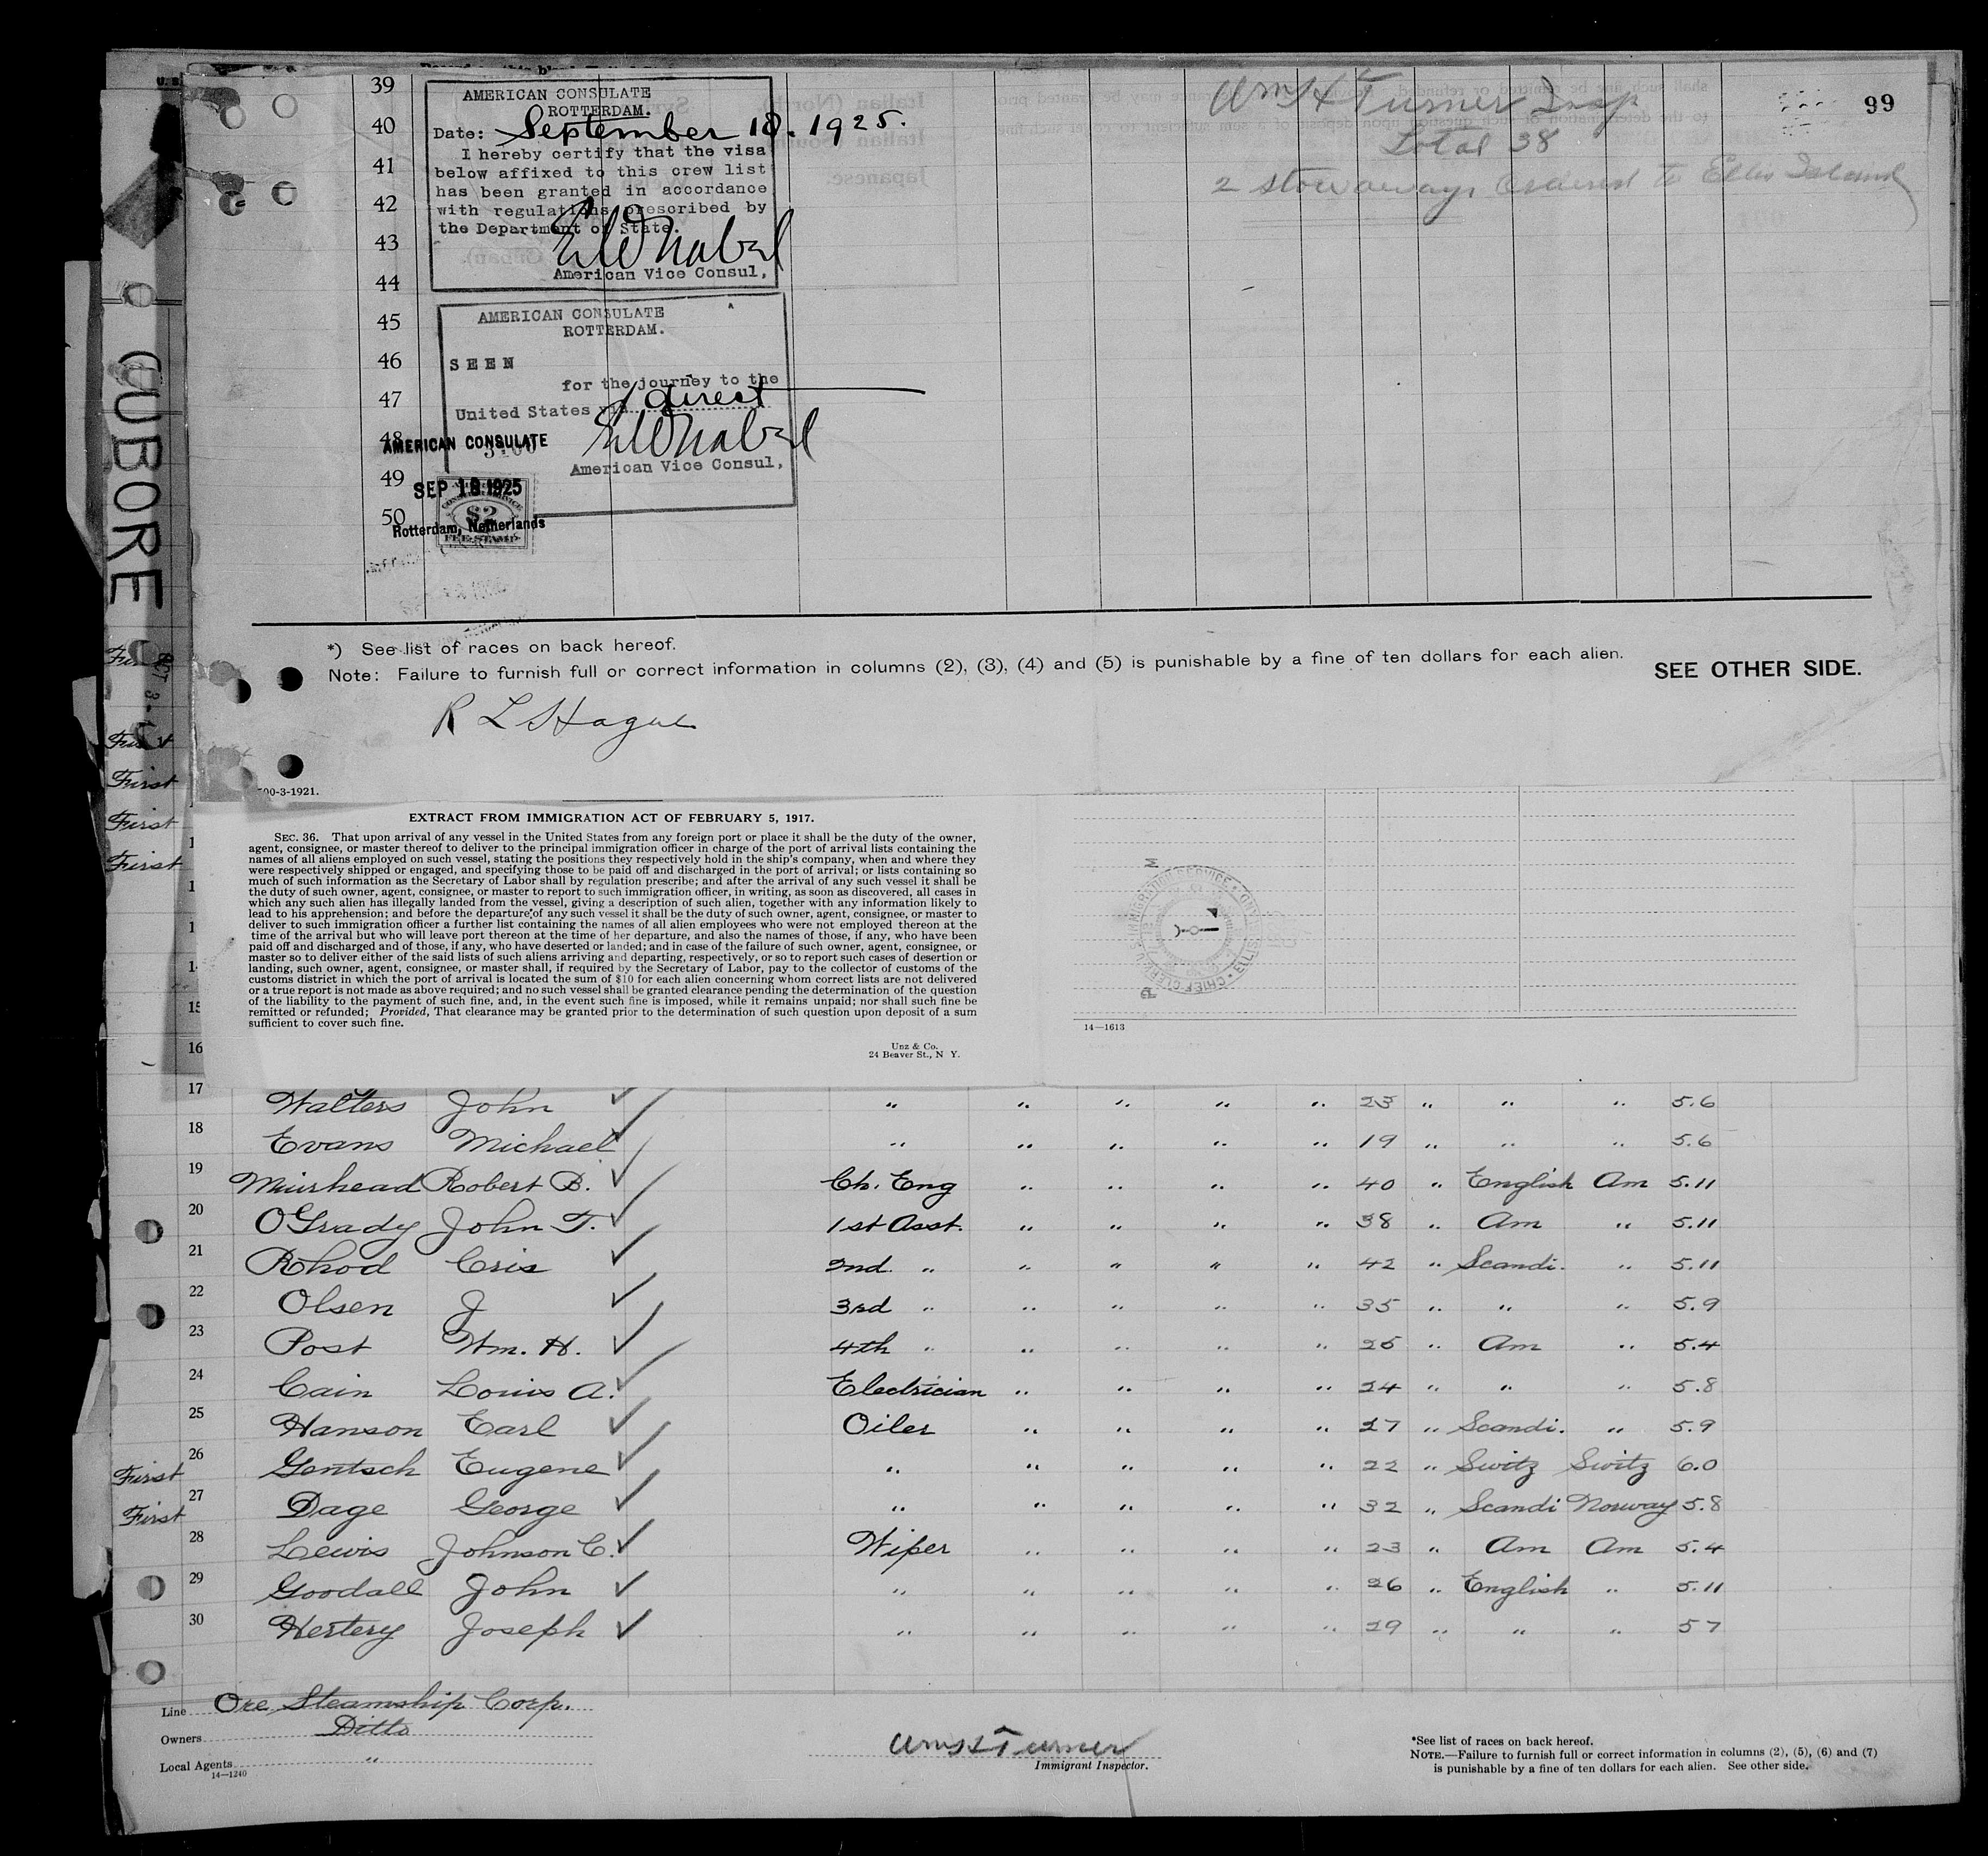 99
39
40
41
42
43
44
45
46
47
48
49
50
AMERICAN CONSULATE
ROTTERDAM.
Date: September 18. 1925.
I hereby certify that the visa
below affixed to this crew list
has been granted in accordance
with regulations prescribed by
the Department of State.
American Vice Consul,
Wm H Turner Insp
Total 38
2 stowaways ordered to Ellis Island
AMERICAN CONSULATE
ROTTERDAM.
SEEN
for the journey to the
United States via direct
American Vice Consul,
AMERICAN CONSULATE
SEP 18 1925
Rotterdam, Netherlands
$2
FEE STAMP
CUBORE
*) See list of races on back hereof.
Note: Failure to furnish full or correct information in columns (2), (3), (4) and (5) is punishable by a fine of ten dollars for each alien.
SEE OTHER SIDE.
R L Hague
00-3-1921.
First
First
First
EXTRACT FROM IMMIGRATION ACT OF FEBRUARY 5, 1917.
SEC. 36. That upon arrival of any vessel in the United States from any foreign port or place it shall be the duty of the owner,
agent, consignee, or master thereof to deliver to the principal immigration officer in charge of the port of arrival lists containing the
names of all aliens employed on such vessel, stating the positions they respectively hold in the ship's company, when and where they
were respectively shipped or engaged, and specifying those to be paid off and discharged in the port of arrival; or lists containing so
much of such information as the Secretary of Labor shall by regulation prescribe; and after the arrival of any such vessel it shall be
the duty of such owner, agent, consignee, or master to report to such immigration officer, in writing, as soon as discovered, all cases in
which any such alien has illegally landed from the vessel, giving a description of such alien, together with any information likely to
lead to his apprehension; and before the departure of any such vessel it shall be the duty of such owner, agent, consignee, or master to
deliver to such immigration officer a further list containing the names of all alien employees who were not employed thereon at the
time of the arrival but who will leave port thereon at the time of her departure, and also the names of those, if any, who have been
paid off and discharged and of those, if any, who have deserted or landed; and in case of the failure of such owner, agent, consignee, or
master so to deliver either of the said lists of such aliens arriving and departing, respectively, or so to report such cases of desertion or
landing, such owner, agent, consignee, or master shall, if required by the Secretary of Labor, pay to the collector of customs of the
customs district in which the port of arrival is located the sum of $10 for each alien concerning whom correct lists are not delivered
or a true report is not made as above required; and no such vessel shall be granted clearance pending the determination of the question
of the liability to the payment of such fine, and, in the event such fine is imposed, while it remains unpaid; nor shall such fine be
remitted or refunded; Provided, That clearance may be granted prior to the determination of such question upon deposit of a sum
sufficient to cover such fine.
Unz & Co.
24 Beaver St., N Y.
14—1613
16
17 Walters John " " " " " 23 " " " 5.6
18 Evans Michael " " " " " 19 " " " 5.6
19 Muirhead Robert B. Ch. Eng " " " " 40 " English Am 5.11
20 OGrady John T. 1st Asst. " " " " 38 " Am " 5.11
21 Rhod Cris 2nd " " " " " 42 " Scandi. " 5.11
22 Olsen J 3rd " " " " " 35 " " " 5.9
23 Post Wm. H. 4th " " " " " 25 " Am " 5.4
24 Cain Louis A. Electrician " " " " 24 " " " 5.8
25 Hanson Earl Oiler " " " " 27 " Scandi. " 5.9
First 26 Gentsch Eugene " " " " " 22 " Switz Switz 6.0
First 27 Dage George " " " " " 32 " Scandi Norway 5.8
28 Lewis Johnson C. Wiper " " " " 23 " Am Am 5.4
29 Goodall John " " " " " 26 " English " 5.11
30 Hertery Joseph " " " " " 29 " " " 5 7
Line Ore Steamship Corp.
Owners Ditto
Local Agents "
14—1240
Wm H Turner
Immigrant Inspector.
*See list of races on back hereof.
NOTE.—Failure to furnish full or correct information in columns (2), (5), (6) and (7)
is punishable by a fine of ten dollars for each alien. See other side.